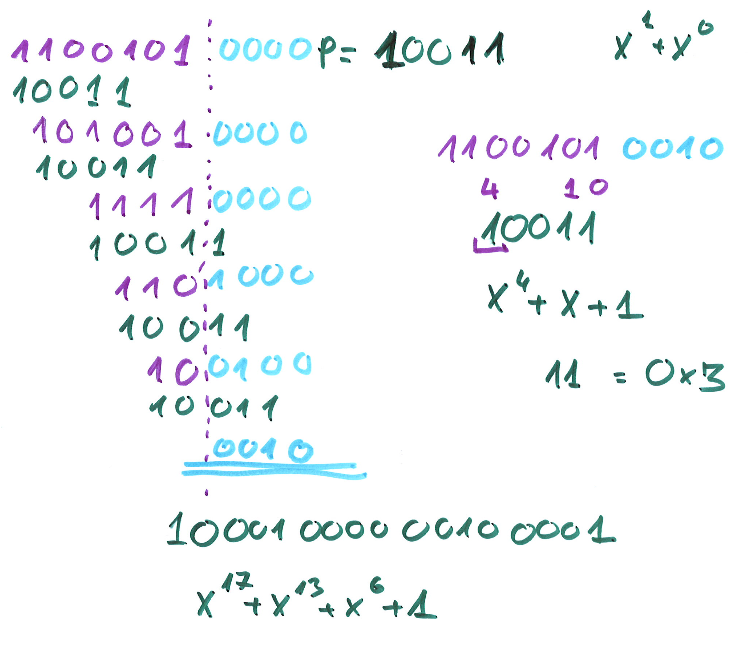 1100101 0000 P= 10011
x¹+x⁰
10011
101001 0000
10011
1111 0000
10011
110 1000
10011
10 0100
10011
0010
1100101 0010
4 10
10011
x⁴+x+1
11 = 0x3
10001 0000 0010 0001
x¹⁷+x¹³+x⁶+1